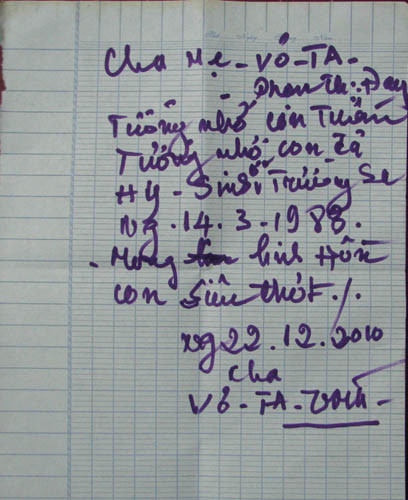 Cha Mẹ - VÕ - TA -
- Phan Thị Đay
Tưởng nhớ con Tuấn
Tưởng nhớ con Đã
Hy - Sinh ở Trường Sa
Ng . 14 . 3 - 1988.
. Mong linh Hồn
con Siêu thót ./.
ng 22 . 12 . 2010
Cha
Võ - TA -